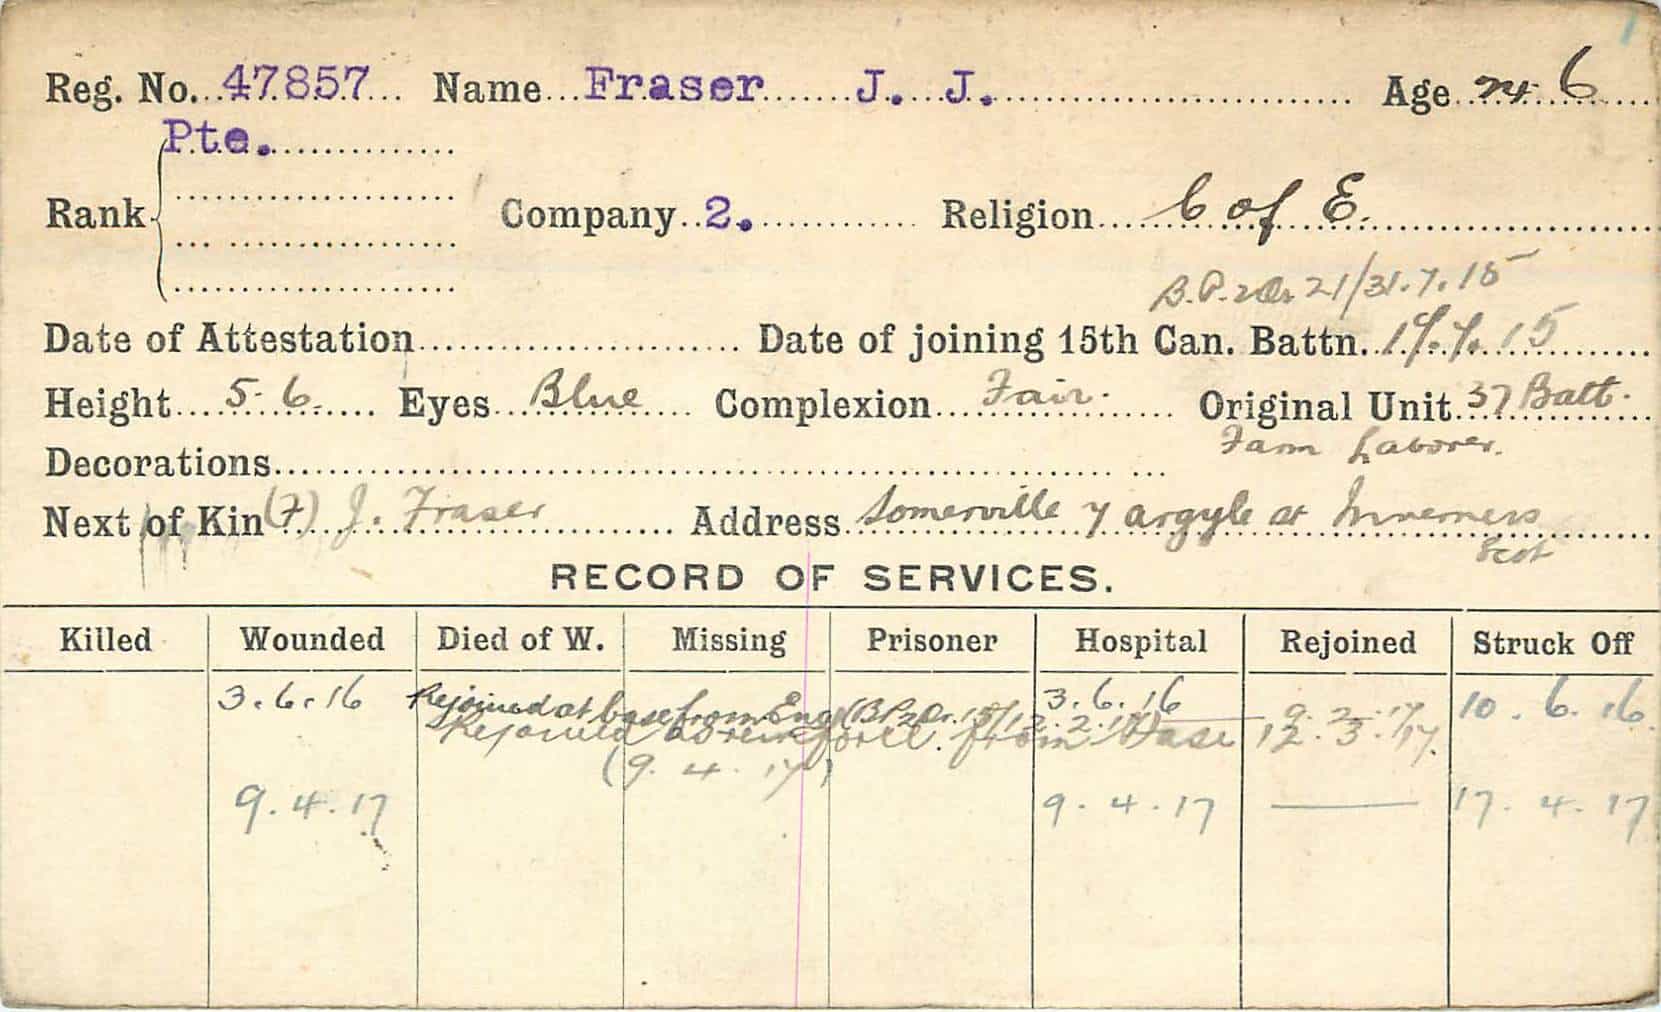 Reg. No. 47857 Name Fraser J. J. Age 24 6
Pte.
Rank Company 2. Religion C of E.
B.P. 2 Or 21/31.7.15
Date of Attestation Date of joining 15th Can. Battn. 19.7.15
Height 5-6. Eyes Blue Complexion Fair. Original Unit 37 Batt.
Farm Laborer.
Decorations
Next of Kin (F) J. Fraser Address Somerville y argyle at Inverness
Scot
RECORD OF SERVICES.
Killed Wounded Died of W. Missing Prisoner Hospital Rejoined Struck Off
3.6.16 Rejoined at base from Eng (BP 2 Or. 15/12.2.17) 3.6.16 9.2.17 10.6.16.
Rejoined as reinforce. from Base 12.3.17.
(9.4.17)
9.4.17 9.4.17 17.4.17